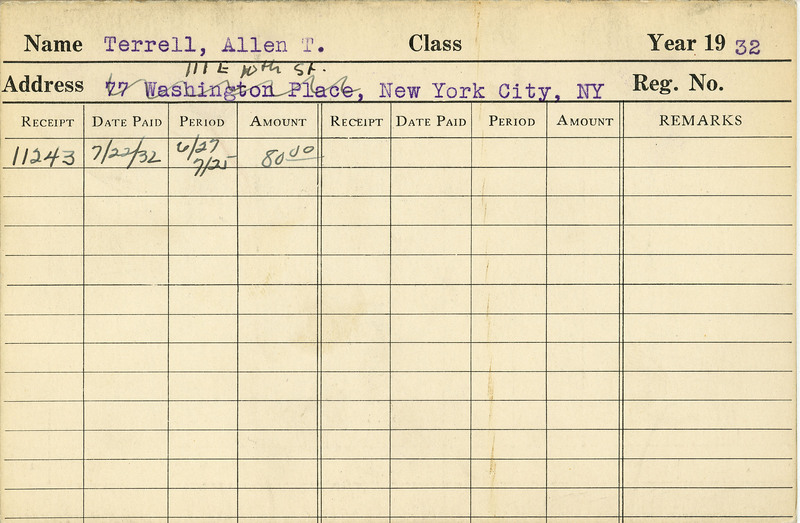 Name Terrell, Allen T. Class Year 19 32
111 E 10th St.
Address 77 Washington Place, New York City, NY Reg. No.
RECEIPT DATE PAID PERIOD AMOUNT RECEIPT DATE PAID PERIOD AMOUNT REMARKS
11243 7/22/32 6/27 80 00
7/25